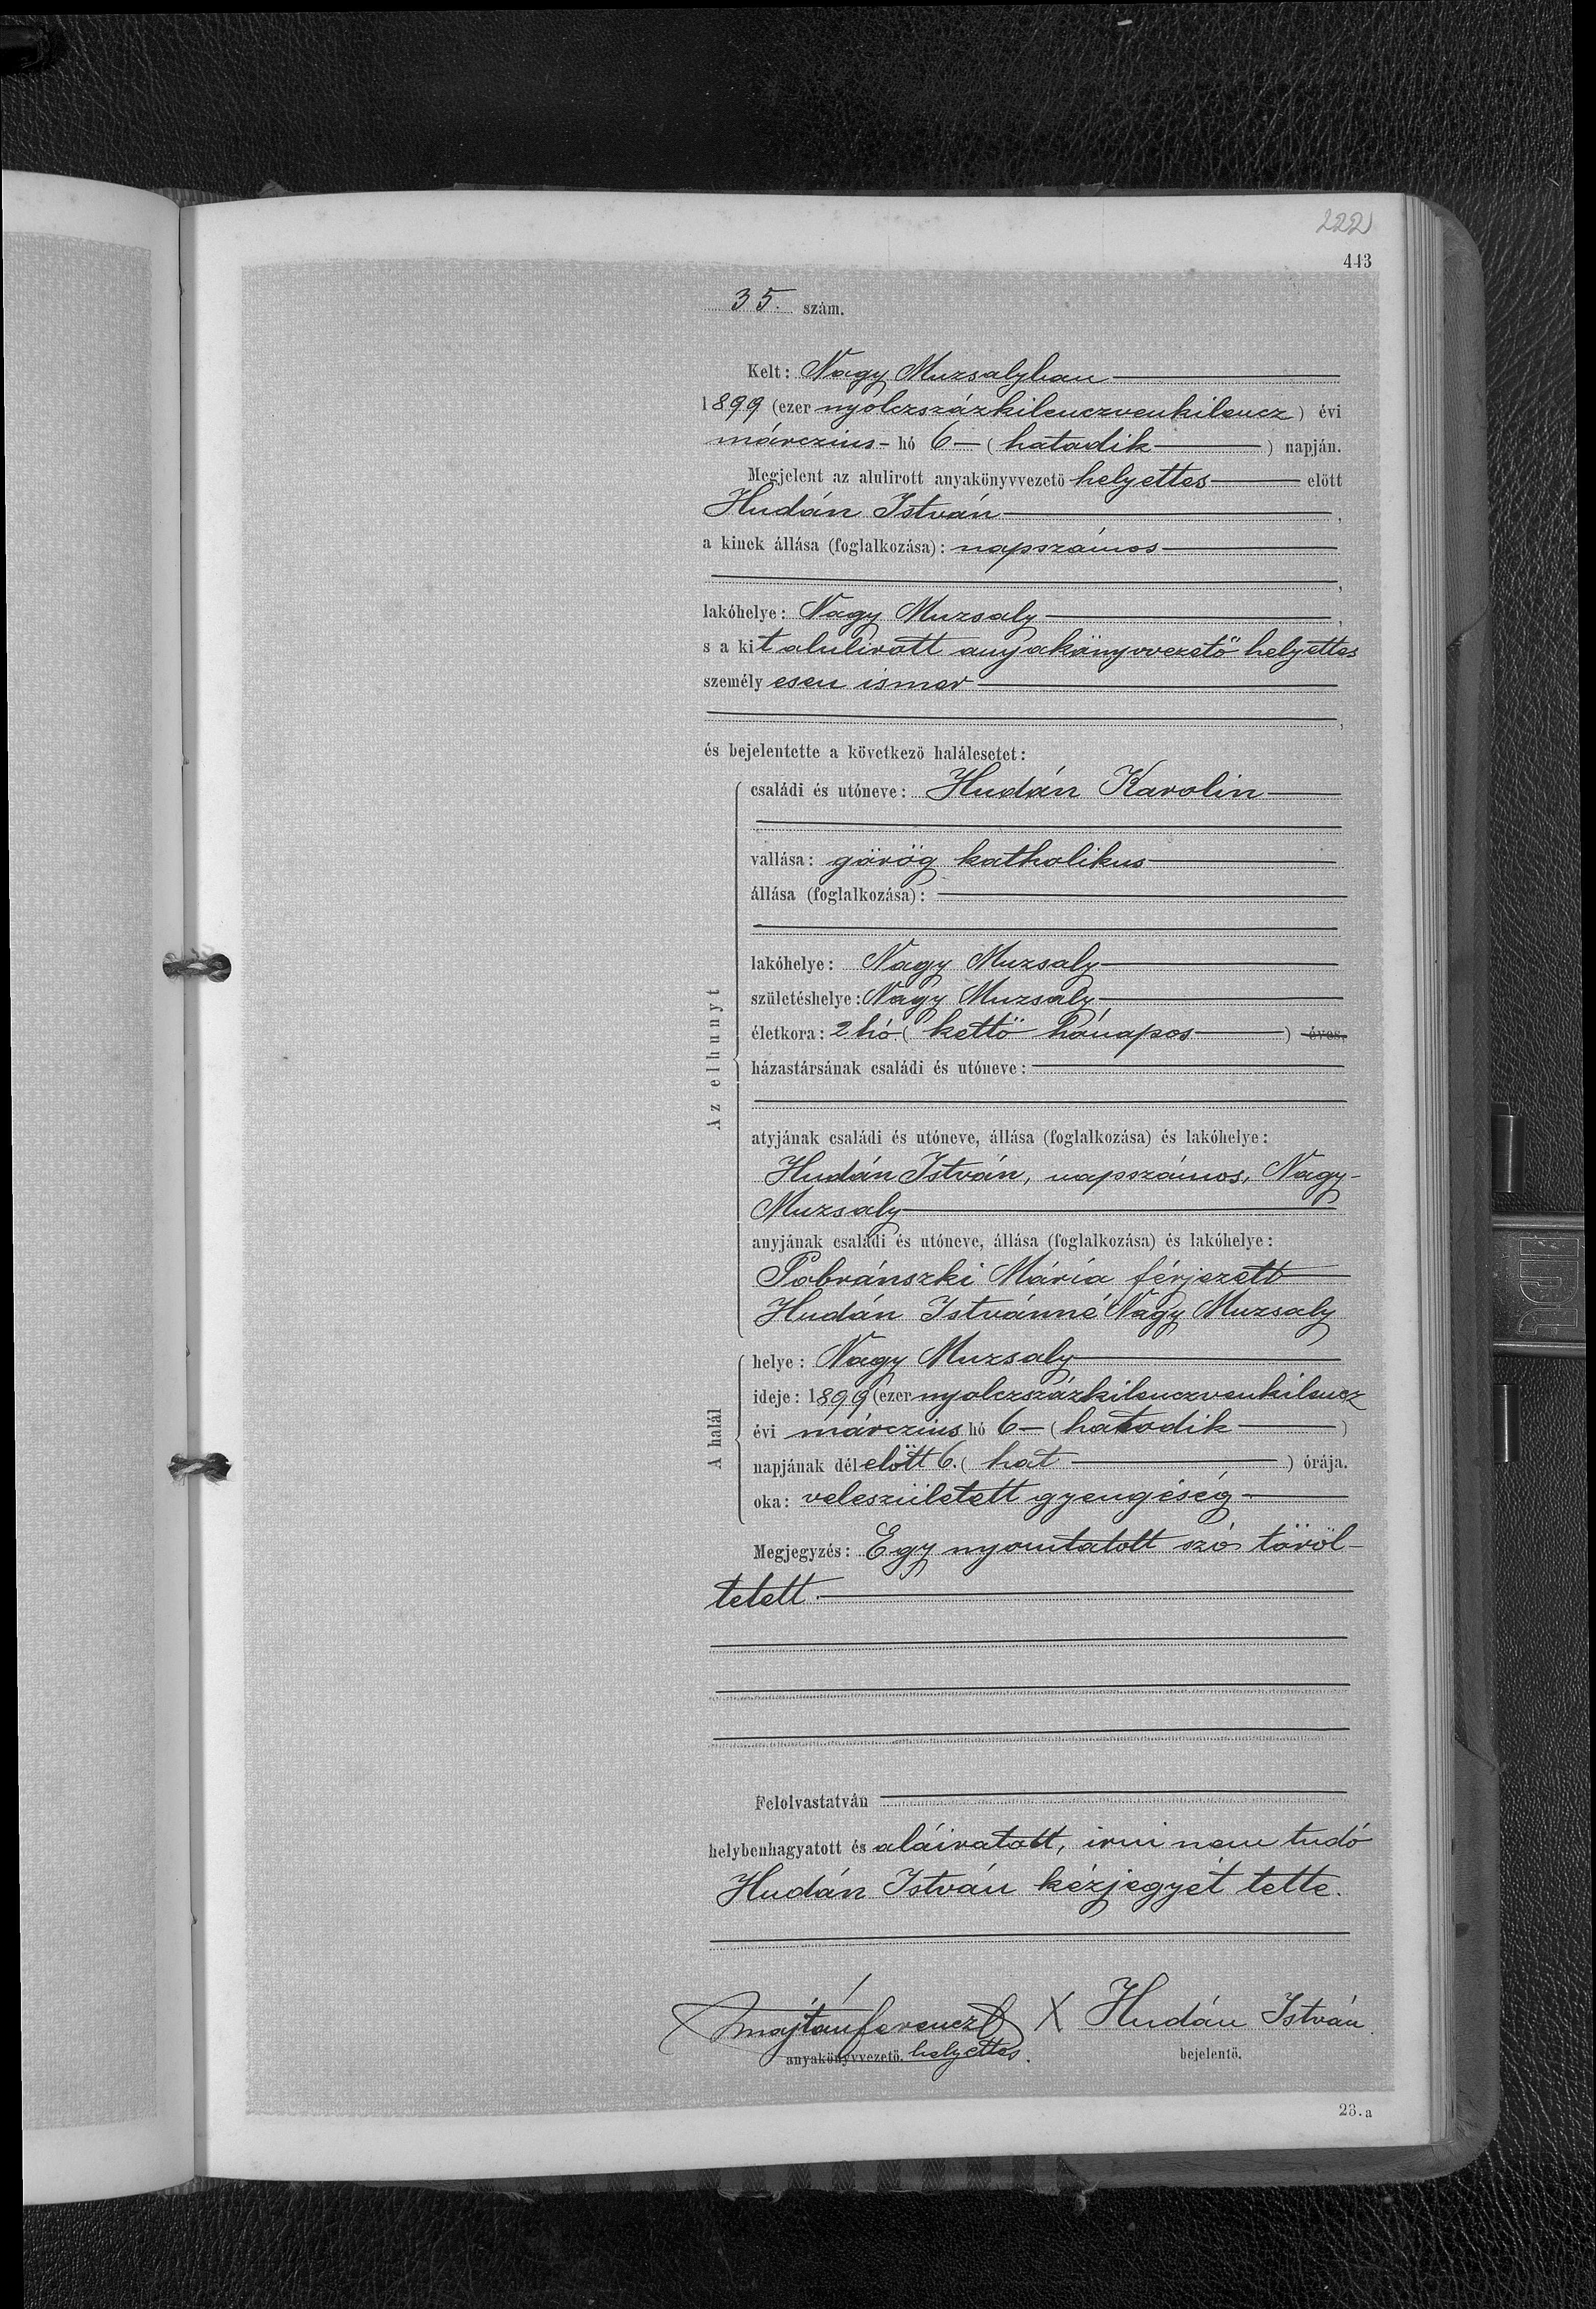 222
443
35. szám.
Kelt: Nagy Muzsalyban
1899 (ezer nyolczszázkilenczvenkilencz) évi
márczius hó 6 (hatodik) napján.
Megjelent az alulirott anyakönyvvezető helyettes előtt
Hudán István,
a kinek állása (foglalkozása): napszámos
,
lakóhelye: Nagy Muzsaly,
s a kit alulirott anyakönyvvezető helyettes
személyesen ismer
,
és bejelentette a következő halálesetet:
Az elhunyt
családi és utóneve: Hudán Karolin
vallása: görög katholikus
állása (foglalkozása):
lakóhelye: Nagy Muzsaly
születéshelye: Nagy Muzsaly
életkora: 2 hó (kettő hónapos) éves,
házastársának családi és utóneve:
atyjának családi és utóneve, állása (foglalkozása) és lakóhelye:
Hudán István, napszámos, Nagy-
Muzsaly
anyjának családi és utóneve, állása (foglalkozása) és lakóhelye:
Pobránszki Mária férjezett
Hudán Istvánné Nagy Muzsaly
A halál
helye: Nagy Muzsaly
ideje: 1899 (ezer nyolczszázkilenczvenkilencz
évi márczius hó 6 (hatodik)
napjának délelőtt 6. (hat) órája.
oka: veleszületett gyengeség
Megjegyzés: Egy nyomtatott szó töröl-
tetett.
Felolvastatván
helybenhagyatott és aláiratott, irni nem tudó
Hudán István kézjegyét tette.
Majtán Ferencz X Hudán István
anyakönyvvezető. helyettes. bejelentő.
28.a